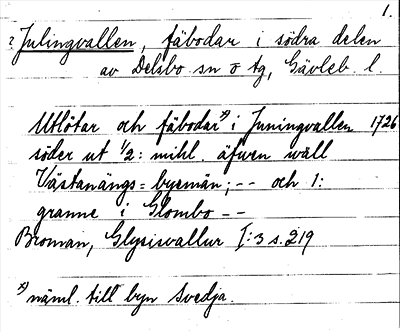 1.
? Julingvallen, fäbodar i södra delen
av Delsbo sn o tg, Gävleb. l.
Utlötar och fäbodar x) i Juningvallen 1726
söder ut 1/2: mihl. äfwen wäll
Västanängs = bysmän; -- och 1:
granne i Glombo --
Broman, Glysisvallur I:3 s. 219
x) näml. till byn Svedja.